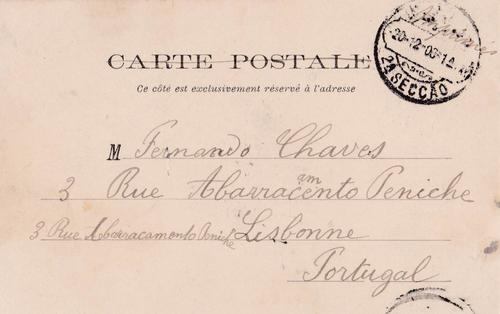 CARTE POSTALE
Ce côté est exclusivement réservé à l'adresse
20-12-03
2A SECCÃO
M Fernando Chaves
am
3 Rue Abarracento Peniche
3 Rue Abarracamento Peniche Lisbonne
Portugal